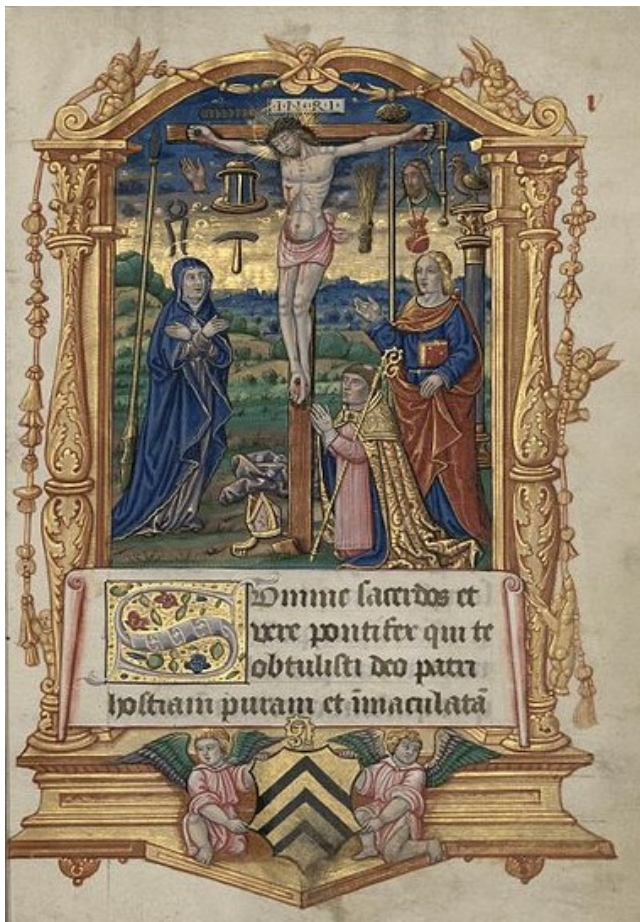 I·N·R·I·
Summe sacerdos et
vere pontifex qui te
obtulisti deo patri
hostiam puram et īmaculatā